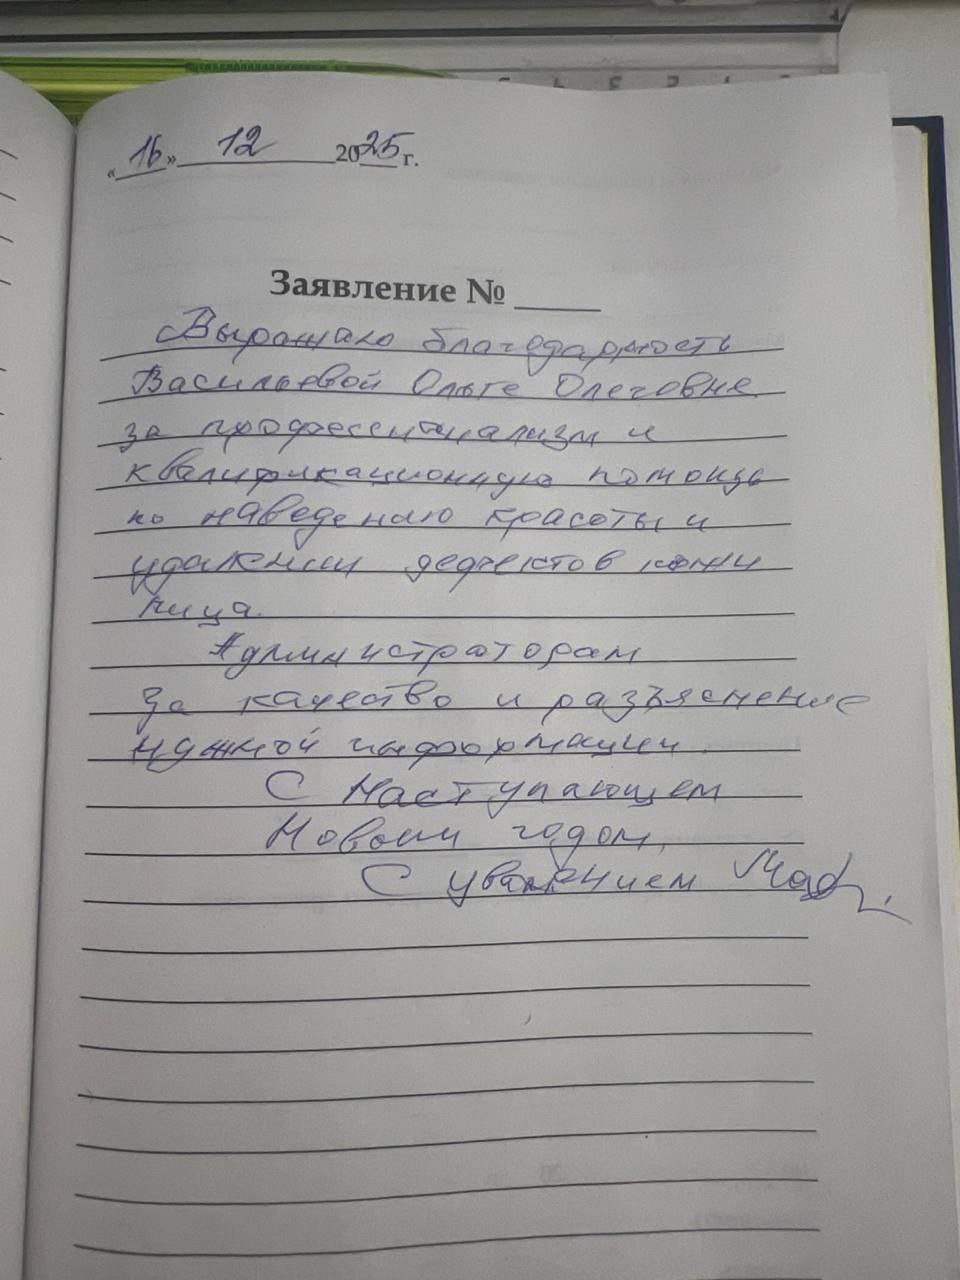 «16» 12 2025 г.
Заявление № ____
Выражаю благодарность
Васильевой Ольге Олеговне
за професситнализм и
квалификационную помощь
по наведению красоты и
удалении дефектов кожи
лица.
Администраторам
за качество и разъяснение
нужной информации.
С Наступающем
Новым годом,
С уважением